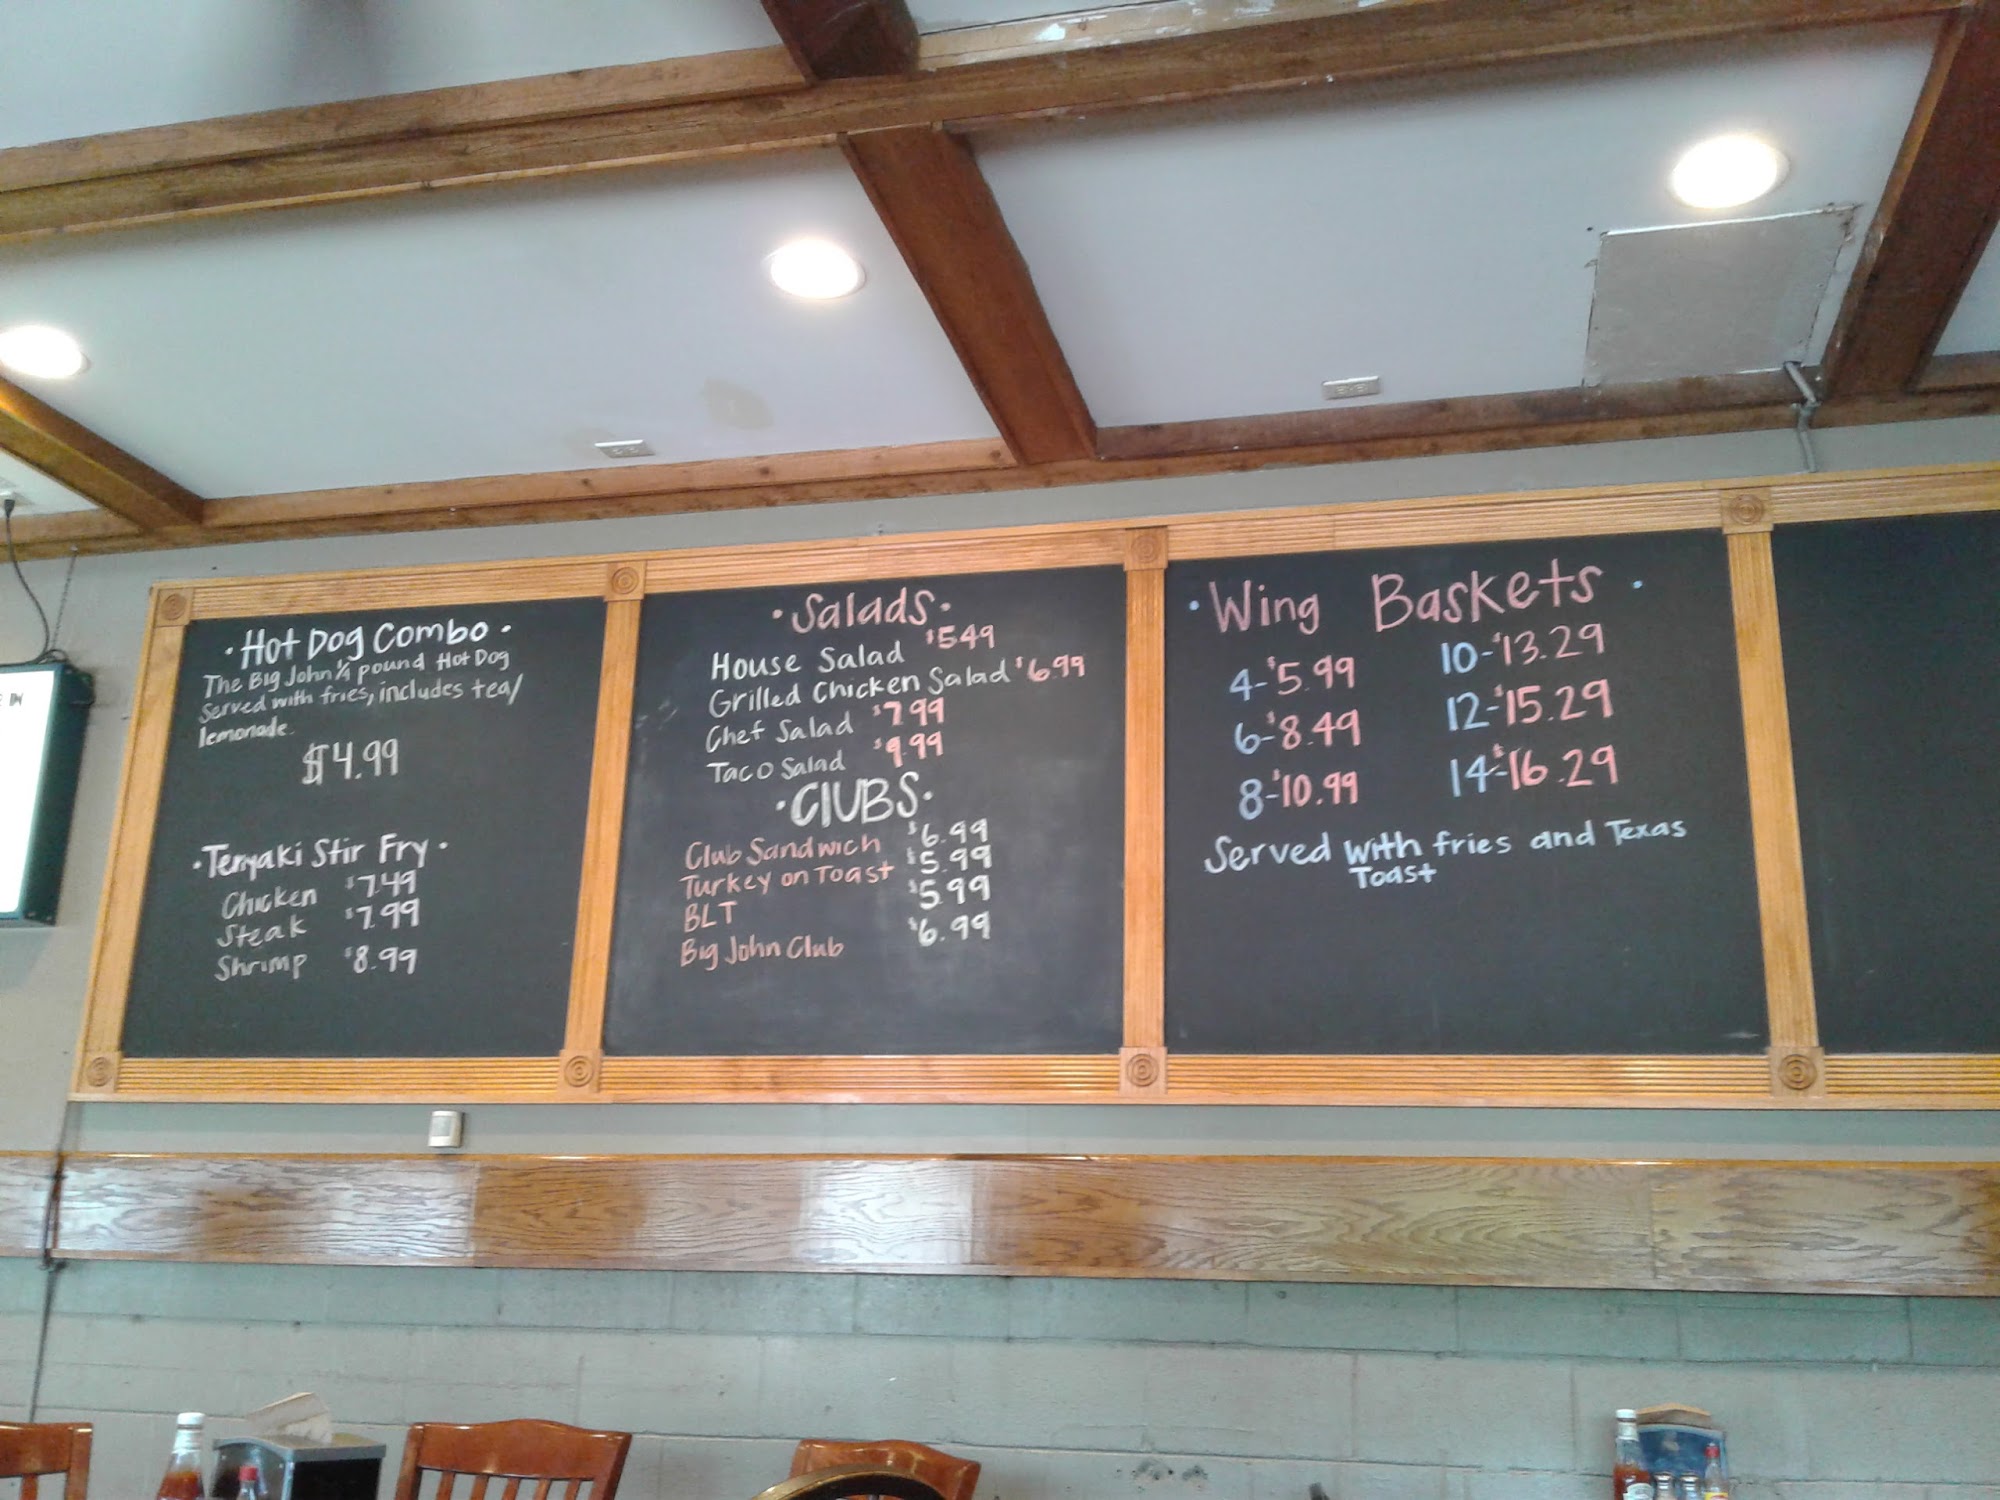 ·Hot Dog Combo·
The Big John 1/4 pound Hot Dog
Served with fries, includes tea/
lemonade.
$4.99
·Teriyaki Stir Fry·
Chicken $7.49
Steak $7.99
Shrimp $8.99
·Salads·
House Salad $5.49
Grilled Chicken Salad $6.99
Chef Salad $7.99
Taco Salad $9.99
·ClUBS·
Club Sandwich $6.99
Turkey on Toast $5.99
BLT $5.99
Big John Club $6.99
·Wing Baskets·
4-$5.99 10-$13.29
6-$8.49 12-$15.29
8-$10.99 14-$16.29
Served with fries and Texas
Toast